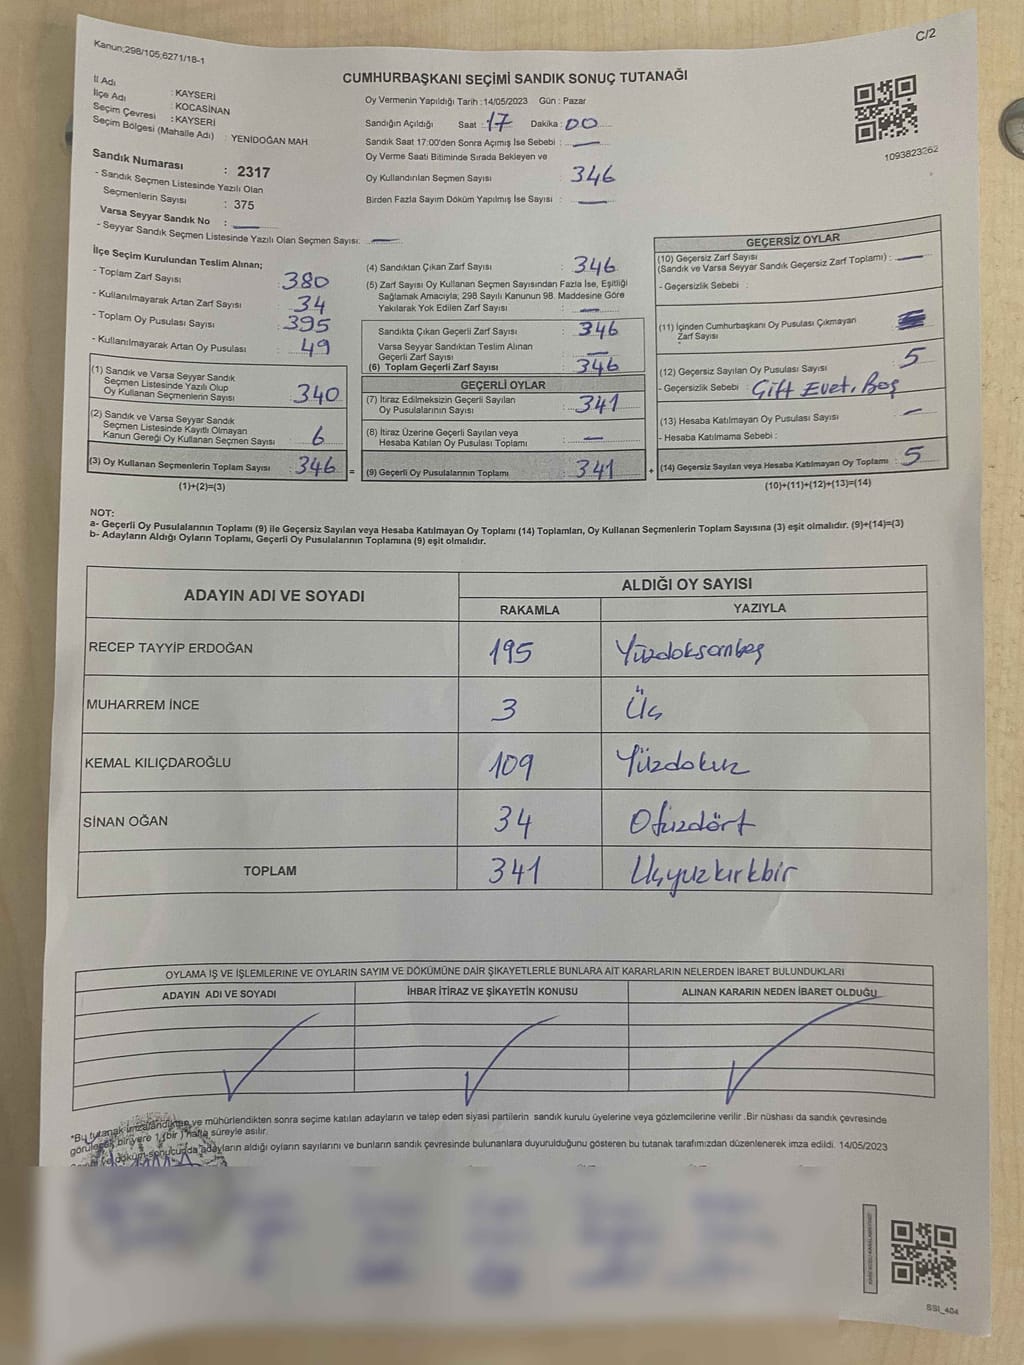 Kanun;298/105,6271/18-1
C/2
CUMHURBAŞKANI SEÇİMİ SANDIK SONUÇ TUTANAĞI
İl Adı : KAYSERİ
İlçe Adı : KOCASİNAN
Seçim Çevresi : KAYSERİ
Seçim Bölgesi (Mahalle Adı) : YENİDOĞAN MAH
Sandık Numarası : 2317
- Sandık Seçmen Listesinde Yazılı Olan
Seçmenlerin Sayısı : 375
Varsa Seyyar Sandık No :
- Seyyar Sandık Seçmen Listesinde Yazılı Olan Seçmen Sayısı:
Oy Vermenin Yapıldığı Tarih :14/05/2023 Gün : Pazar
Sandığın Açıldığı Saat : 17 Dakika : 00
Sandık Saat 17:00'den Sonra Açımış İse Sebebi :
Oy Verme Saati Bitiminde Sırada Bekleyen ve
Oy Kullandırılan Seçmen Sayısı : 346
Birden Fazla Sayım Döküm Yapılmış İse Sayısı :
1093823262
İlçe Seçim Kurulundan Teslim Alınan;
- Toplam Zarf Sayısı : 380
- Kullanılmayarak Artan Zarf Sayısı : 34
- Toplam Oy Pusulası Sayısı : 395
- Kullanılmayarak Artan Oy Pusulası : 49
(1) Sandık ve Varsa Seyyar Sandık
Seçmen Listesinde Yazılı Olup
Oy Kullanan Seçmenlerin Sayısı : 340
(2) Sandık ve Varsa Seyyar Sandık
Seçmen Listesinde Kayıtlı Olmayan
Kanun Gereği Oy Kullanan Seçmen Sayısı : 6
(3) Oy Kullanan Seçmenlerin Toplam Sayısı : 346 =
(1)+(2)=(3)
(4) Sandıktan Çıkan Zarf Sayısı : 346
(5) Zarf Sayısı Oy Kullanan Seçmen Sayısından Fazla İse, Eşitliği
Sağlamak Amacıyla; 298 Sayılı Kanunun 98. Maddesine Göre
Yakılarak Yok Edilen Zarf Sayısı :
Sandıkta Çıkan Geçerli Zarf Sayısı : 346
Varsa Seyyar Sandıktan Teslim Alınan
Geçerli Zarf Sayısı :
(6) Toplam Geçerli Zarf Sayısı : 346
GEÇERLİ OYLAR
(7) İtiraz Edilmeksizin Geçerli Sayılan
Oy Pusulalarının Sayısı : 341
(8) İtiraz Üzerine Geçerli Sayılan veya
Hesaba Katılan Oy Pusulası Toplamı :
(9) Geçerli Oy Pusulalarının Toplamı : 341 +
GEÇERSİZ OYLAR
(10) Geçersiz Zarf Sayısı
(Sandık ve Varsa Seyyar Sandık Geçersiz Zarf Toplamı) :
- Geçersizlik Sebebi :
(11) İçinden Cumhurbaşkanı Oy Pusulası Çıkmayan
Zarf Sayısı
(12) Geçersiz Sayılan Oy Pusulası Sayısı : 5
- Geçersizlik Sebebi : Çift Evet, Boş
(13) Hesaba Katılmayan Oy Pusulası Sayısı :
- Hesaba Katılmama Sebebi :
(14) Geçersiz Sayılan veya Hesaba Katılmayan Oy Toplamı : 5
(10)+(11)+(12)+(13)=(14)
NOT:
a- Geçerli Oy Pusulalarının Toplamı (9) ile Geçersiz Sayılan veya Hesaba Katılmayan Oy Toplamı (14) Toplamları, Oy Kullanan Seçmenlerin Toplam Sayısına (3) eşit olmalıdır. (9)+(14)=(3)
b- Adayların Aldığı Oyların Toplamı, Geçerli Oy Pusulalarının Toplamına (9) eşit olmalıdır.
ADAYIN ADI VE SOYADI
ALDIĞI OY SAYISI
RAKAMLA YAZIYLA
RECEP TAYYİP ERDOĞAN 195 Yüzdoksanbeş
MUHARREM İNCE 3 Üç
KEMAL KILIÇDAROĞLU 109 Yüzdokuz
SİNAN OĞAN 34 Otuzdört
TOPLAM 341 Üçyuzkırkbir
OYLAMA İŞ VE İŞLEMLERİNE VE OYLARIN SAYIM VE DÖKÜMÜNE DAİR ŞİKAYETLERLE BUNLARA AİT KARARLARIN NELERDEN İBARET BULUNDUKLARI
ADAYIN ADI VE SOYADI İHBAR İTİRAZ VE ŞİKAYETİN KONUSU ALINAN KARARIN NEDEN İBARET OLDUĞU
*Bu tutanak imzalandıktan ve mühürlendikten sonra seçime katılan adayların ve talep eden siyasi partilerin sandık kurulu üyelerine veya gözlemcilerine verilir .Bir nüshası da sandık çevresinde
görülecek bir yere 1 (bir ) hafta süreyle asılır.
ve döküm sonucunda adayların aldığı oyların sayılarını ve bunların sandık çevresinde bulunanlara duyurulduğunu gösteren bu tutanak tarafımızdan düzenlenerek imza edildi. 14/05/2023
SSI_404